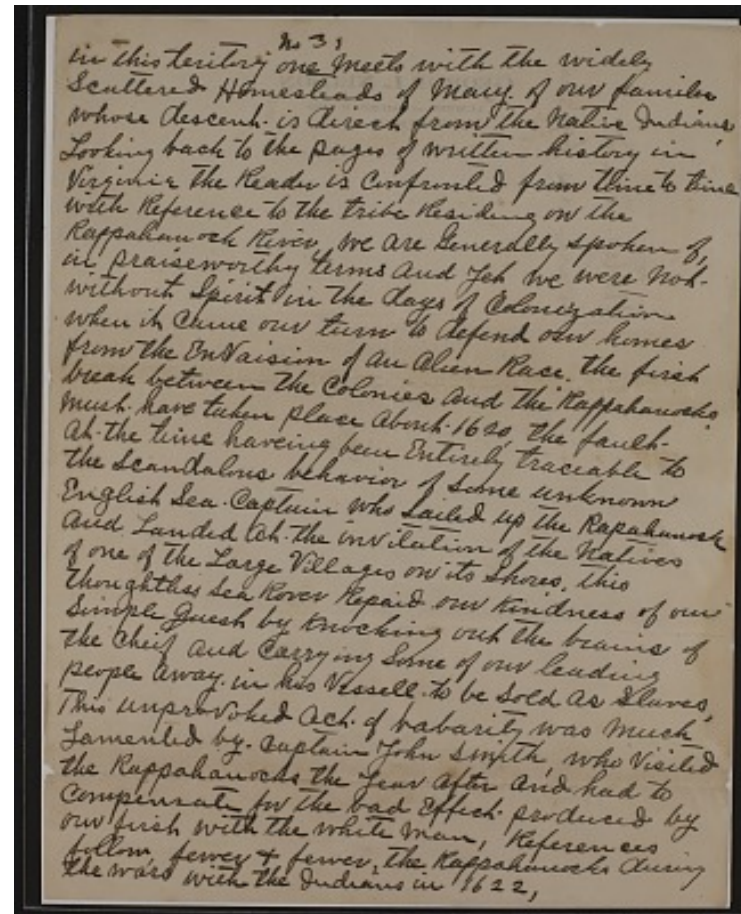 No 3,
in this teritory one meets with the widely
Scattered Homesteads of Many of our families
whose descent is direct from the Native Indians
Looking back to the pages of written history in
Virginia the Reader is Confronted from time to time
with Reference to the tribe Residing on the
Rappahanock River, we are Generally spoken of,
in praiseworthy terms And Yet we were Not
without Spirit in the days of Colonization
when it Came our turn to defend our homes
from the EnVaision of An Alien Race. the first
break between the Colonies And the Rappahanocks
Must have taken place About 1620, the fault
At the time haveing been Entirely traceable to
the Scandalous behavior of Some unknown
English Sea Captain who Sailed up the Rapahanock
And Landed At the invitation of the Natives
of one of the Large Villages on its Shores, this
thoughtless Sea Rover Repaid our Kindness of our
Simple Guest by Knocking out the brains of
the Cheif And Carrying Some of our leading
people Away in his Vessell to be Sold As Slaves,
This unprovoked Act of babarity was Much
Lamented by Captain John Smyth, who Visited
the Rappahanocks the Year After And had to
Compensate for the bad Effect produced by
our first with the white Man, References
follow, fewer & fewer, the Rappahanocks during
the wars with the Indians in 1622,